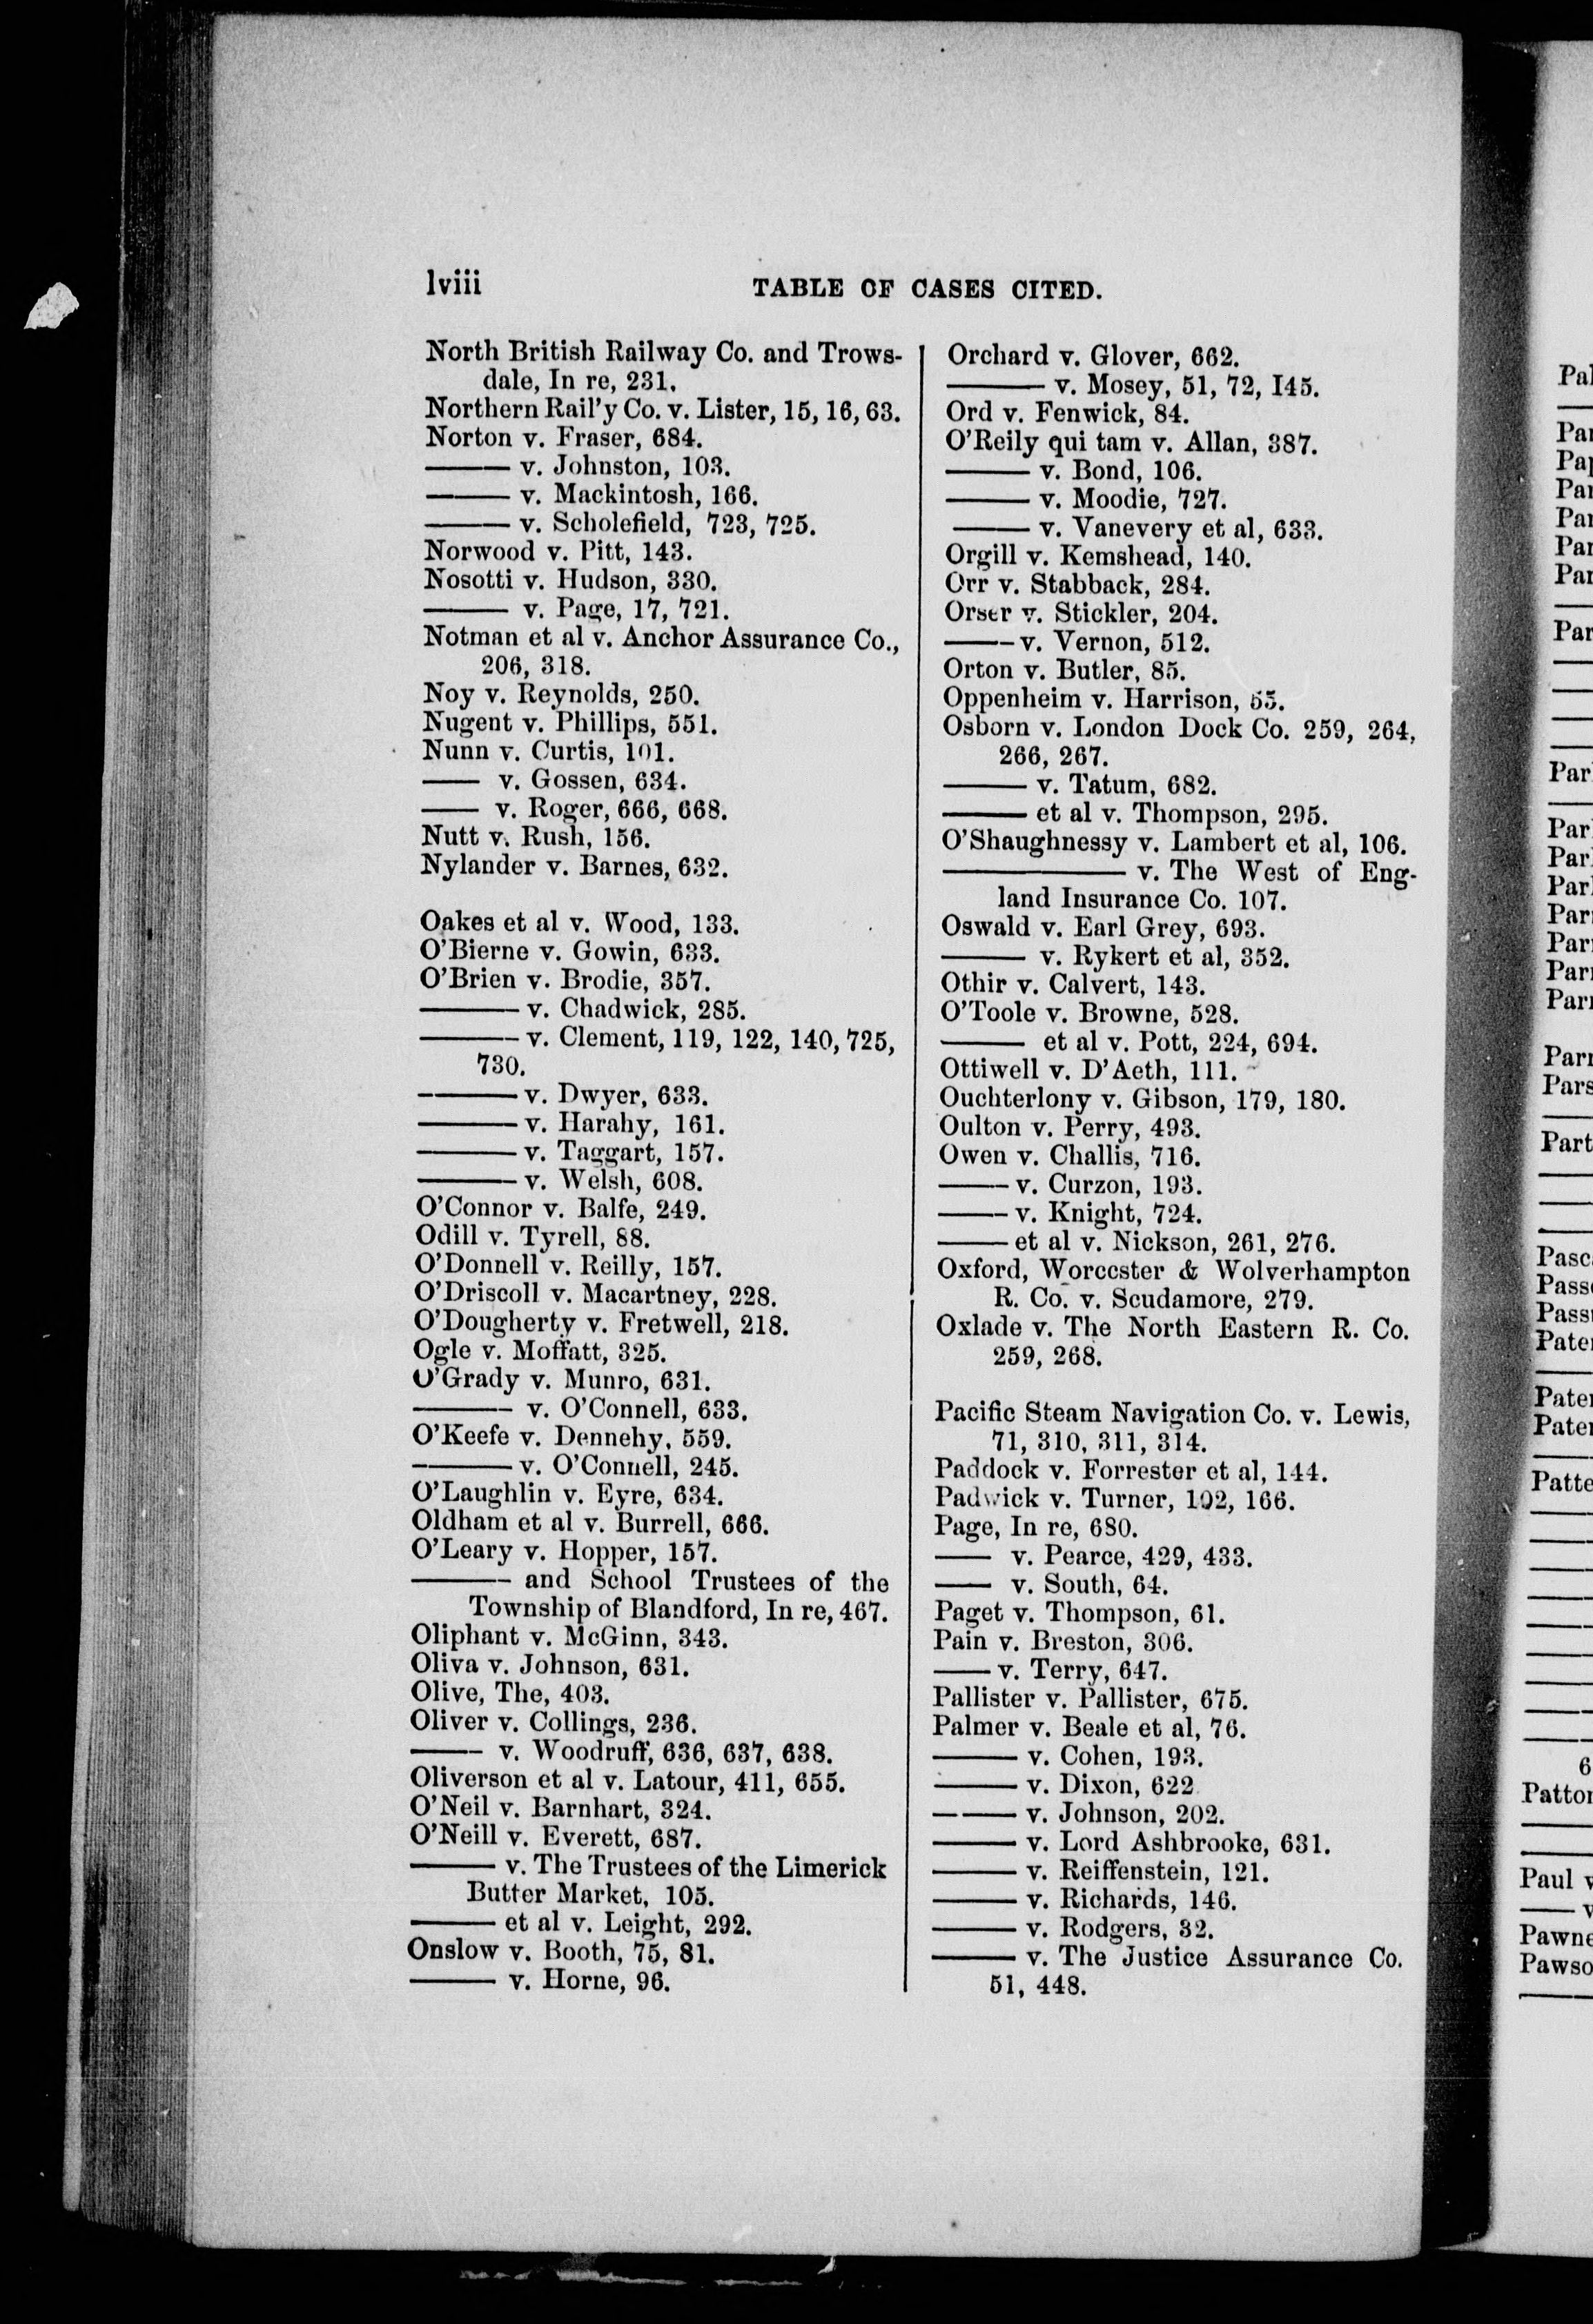 lviii
TABLE OF CASES CITED.
North British Railway Co. and Trows-
dale, In re, 231.
Northern Rail'y Co. v. Lister, 15, 16, 63.
Norton v. Fraser, 684.
——— v. Johnston, 103.
——— v. Mackintosh, 166.
——— v. Scholefield, 723, 725.
Norwood v. Pitt, 143.
Nosotti v. Hudson, 330.
——— v. Page, 17, 721.
Notman et al v. Anchor Assurance Co.,
206, 318.
Noy v. Reynolds, 250.
Nugent v. Phillips, 551.
Nunn v. Curtis, 101.
—— v. Gossen, 634.
—— v. Roger, 666, 668.
Nutt v. Rush, 156.
Nylander v. Barnes, 632.
Oakes et al v. Wood, 133.
O'Bierne v. Gowin, 633.
O'Brien v. Brodie, 357.
——— v. Chadwick, 285.
——— v. Clement, 119, 122, 140, 725,
730.
——— v. Dwyer, 633.
——— v. Harahy, 161.
——— v. Taggart, 157.
——— v. Welsh, 608.
O'Connor v. Balfe, 249.
Odill v. Tyrell, 88.
O'Donnell v. Reilly, 157.
O'Driscoll v. Macartney, 228.
O'Dougherty v. Fretwell, 218.
Ogle v. Moffatt, 325.
O'Grady v. Munro, 631.
——— v. O'Connell, 633.
O'Keefe v. Dennehy, 559.
——— v. O'Connell, 245.
O'Laughlin v. Eyre, 634.
Oldham et al v. Burrell, 666.
O'Leary v. Hopper, 157.
——— and School Trustees of the
Township of Blandford, In re, 467.
Oliphant v. McGinn, 343.
Oliva v. Johnson, 631.
Olive, The, 403.
Oliver v. Collings, 236.
——— v. Woodruff, 636, 637, 638.
Oliverson et al v. Latour, 411, 655.
O'Neil v. Barnhart, 324.
O'Neill v. Everett, 687.
——— v. The Trustees of the Limerick
Butter Market, 105.
——— et al v. Leight, 292.
Onslow v. Booth, 75, 81.
——— v. Horne, 96.
Orchard v. Glover, 662.
——— v. Mosey, 51, 72, 145.
Ord v. Fenwick, 84.
O'Reily qui tam v. Allan, 387.
——— v. Bond, 106.
——— v. Moodie, 727.
——— v. Vanevery et al, 633.
Orgill v. Kemshead, 140.
Orr v. Stabback, 284.
Orser v. Stickler, 204.
——— v. Vernon, 512.
Orton v. Butler, 85.
Oppenheim v. Harrison, 55.
Osborn v. London Dock Co. 259, 264,
266, 267.
——— v. Tatum, 682.
——— et al v. Thompson, 295.
O'Shaughnessy v. Lambert et al, 106.
————— v. The West of Eng-
land Insurance Co. 107.
Oswald v. Earl Grey, 693.
——— v. Rykert et al, 352.
Othir v. Calvert, 143.
O'Toole v. Browne, 528.
——— et al v. Pott, 224, 694.
Ottiwell v. D'Aeth, 111.
Ouchterlony v. Gibson, 179, 180.
Oulton v. Perry, 493.
Owen v. Challis, 716.
——— v. Curzon, 193.
——— v. Knight, 724.
——— et al v. Nickson, 261, 276.
Oxford, Worcester & Wolverhampton
R. Co. v. Scudamore, 279.
Oxlade v. The North Eastern R. Co.
259, 268.
Pacific Steam Navigation Co. v. Lewis,
71, 310, 311, 314.
Paddock v. Forrester et al, 144.
Padwick v. Turner, 102, 166.
Page, In re, 680.
—— v. Pearce, 429, 433.
—— v. South, 64.
Paget v. Thompson, 61.
Pain v. Breston, 306.
—— v. Terry, 647.
Pallister v. Pallister, 675.
Palmer v. Beale et al, 76.
——— v. Cohen, 193.
——— v. Dixon, 622
——— v. Johnson, 202.
——— v. Lord Ashbrooke, 631.
——— v. Reiffenstein, 121.
——— v. Richards, 146.
——— v. Rodgers, 32.
——— v. The Justice Assurance Co.
51, 448.